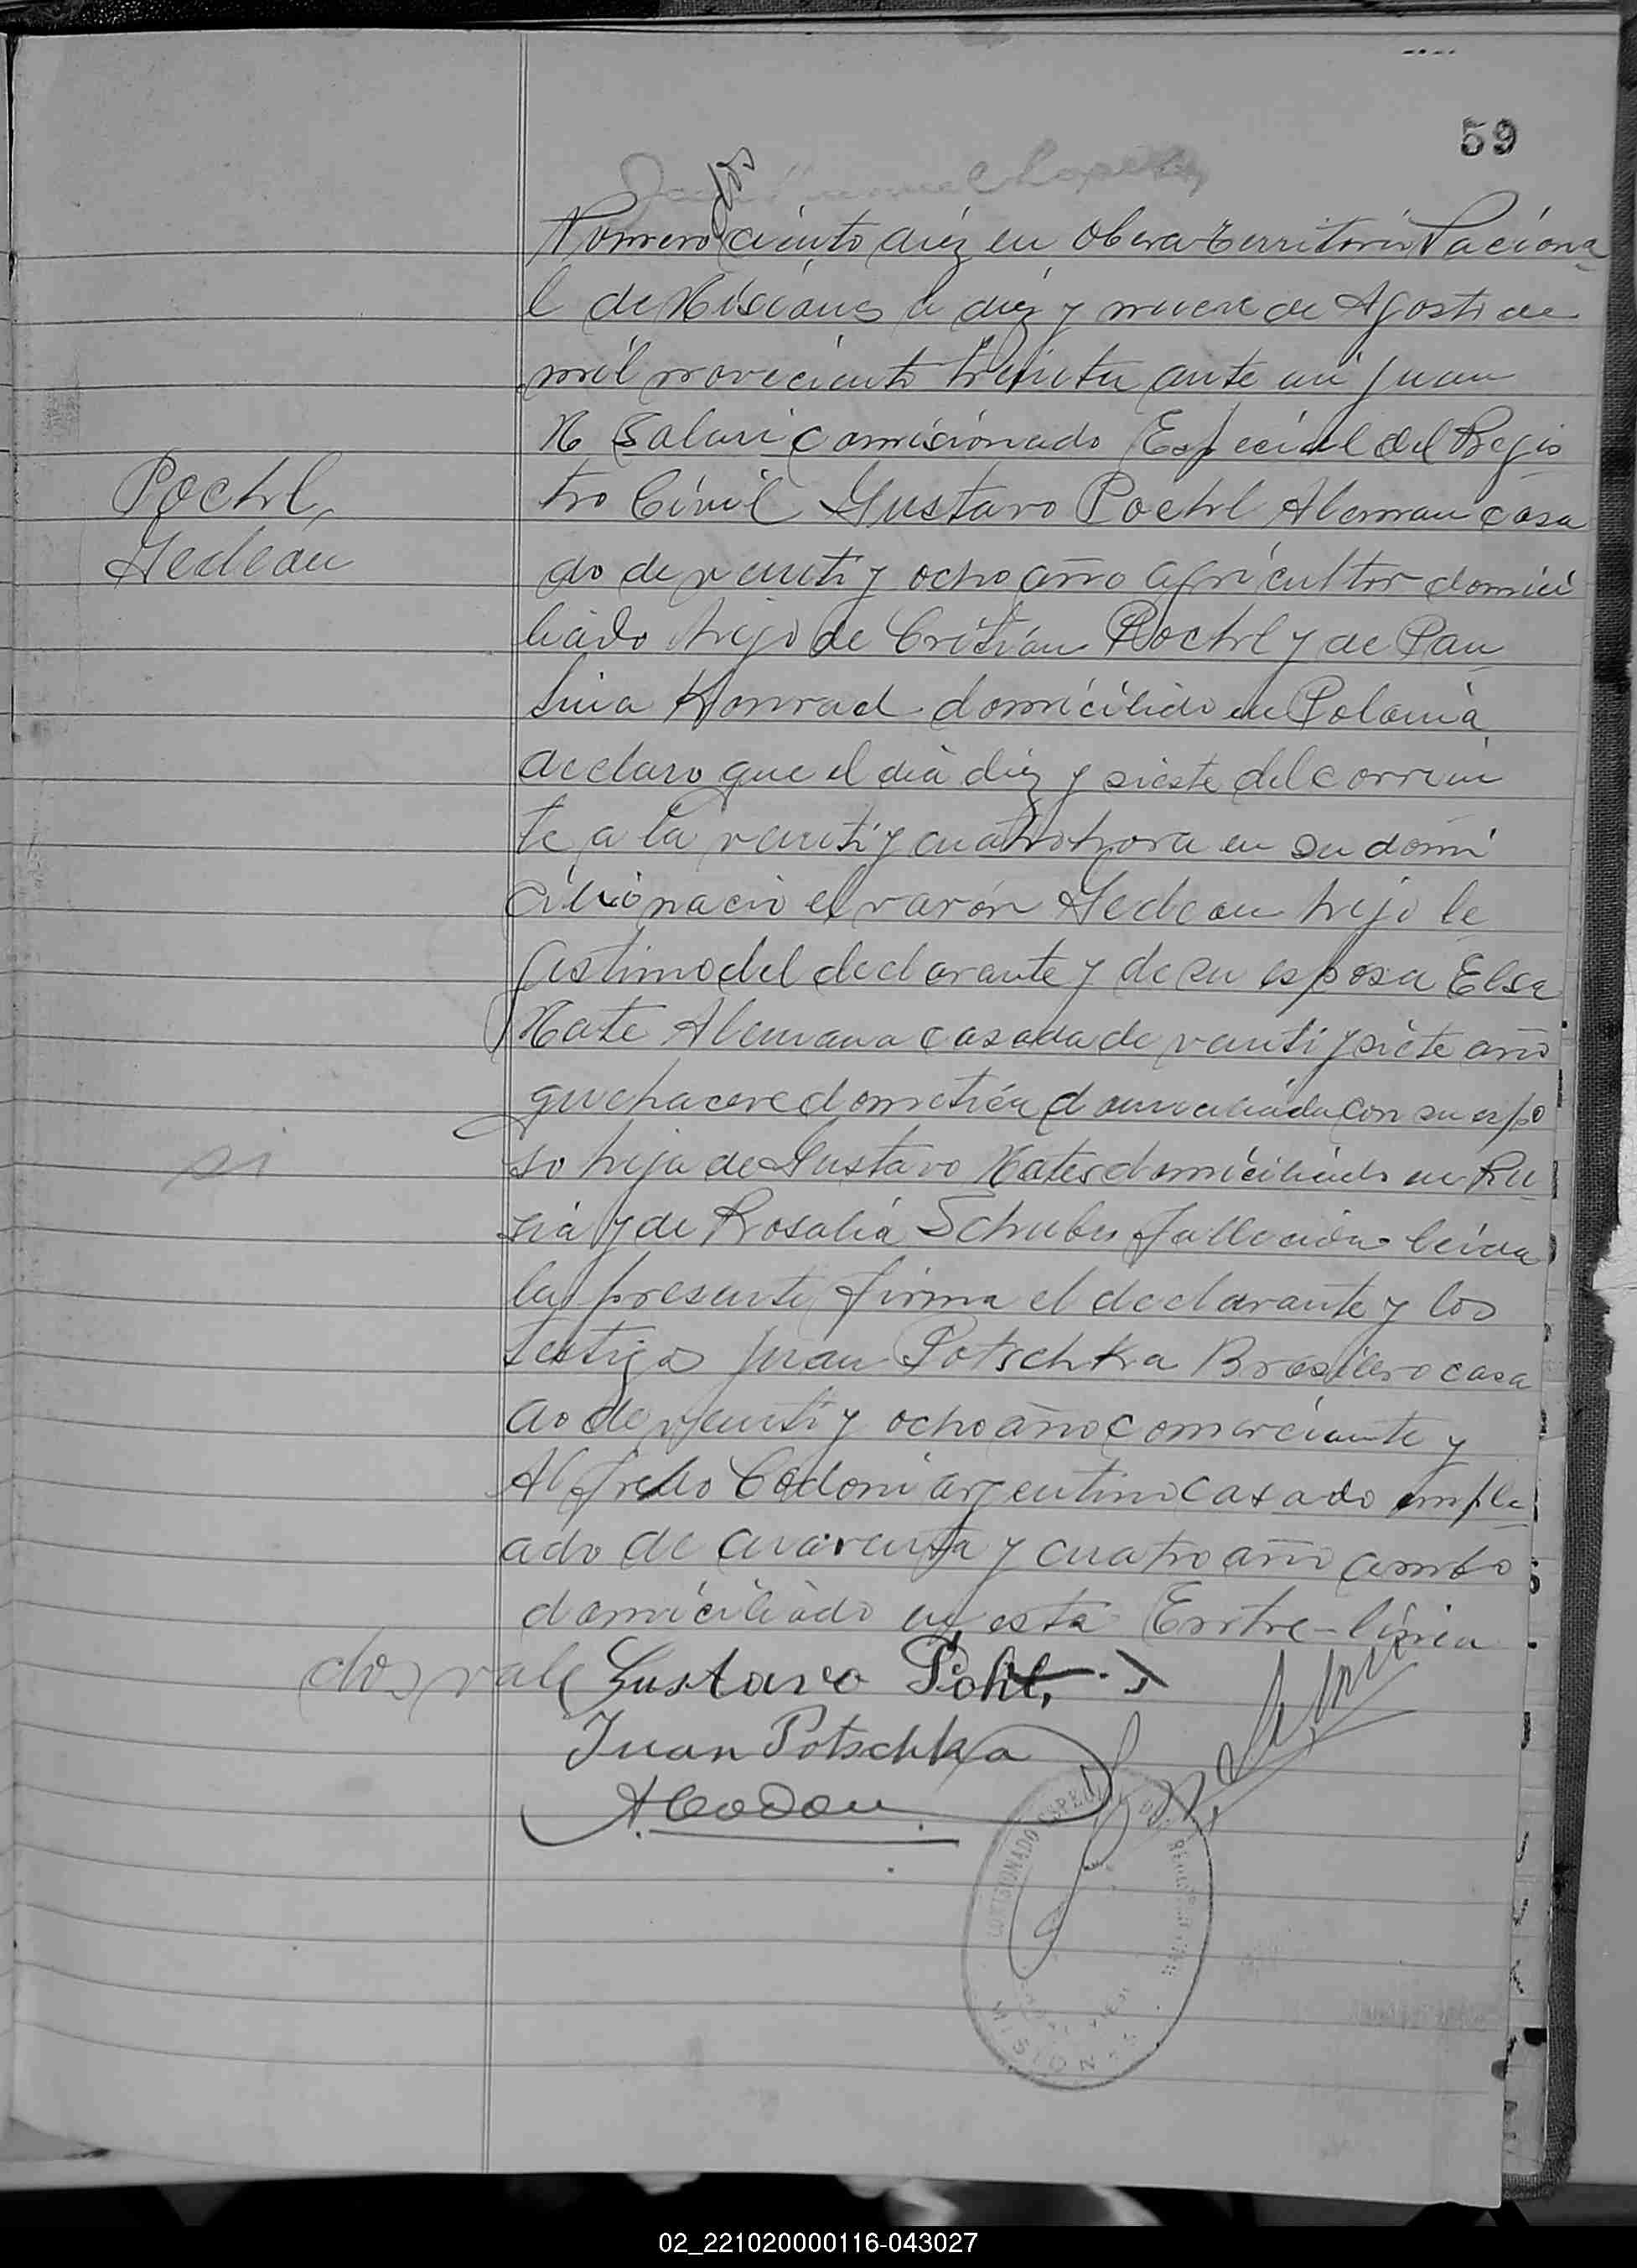 59
dos
Nomero ciento diez en Obera Territorio Naciona-
l de Misiones a diez y nueve de Agosto de
mil noveciento treinta ante mi Juan
M Solari Comisionado Especial del Regis
tro Civil Gustavo Poehl Aleman casa
Poehl,
Gedeau
do de venti y ocho año agricultor domici
liado hijo de Cristian Poehl y de Pau
lina Konrad domicilido en Polonia
declaro que el dia diez y sieste del corrien
te a la venti y cuatro hora en su domi
cilio nacio el varon Gedeau hijo le
gestimo del declarante y de su esposa Elsa
Mate Alemana casada de venti y siete año
quehacere dometica domiciliada con su espo
so hija de Gustavo Mates domiciliado en Ru-
sia y de Rosalia Schuber fallecida leida
la presente firma el declarante y los
testigos Juan Potschka Brasilero casa
do de venti y ocho año comerciante y
Alfredo Codoni argentino casado emple-
ado de cuarenta y cuatro año ambo
domiciliado en esta Entre-linea
dos vale Gustavo Pohl,
Juan Potschka
A. Codoni
COMISIONADO ESPECIAL DEL REGISTRO CIVIL
MISIONES
02_221020000116-043027